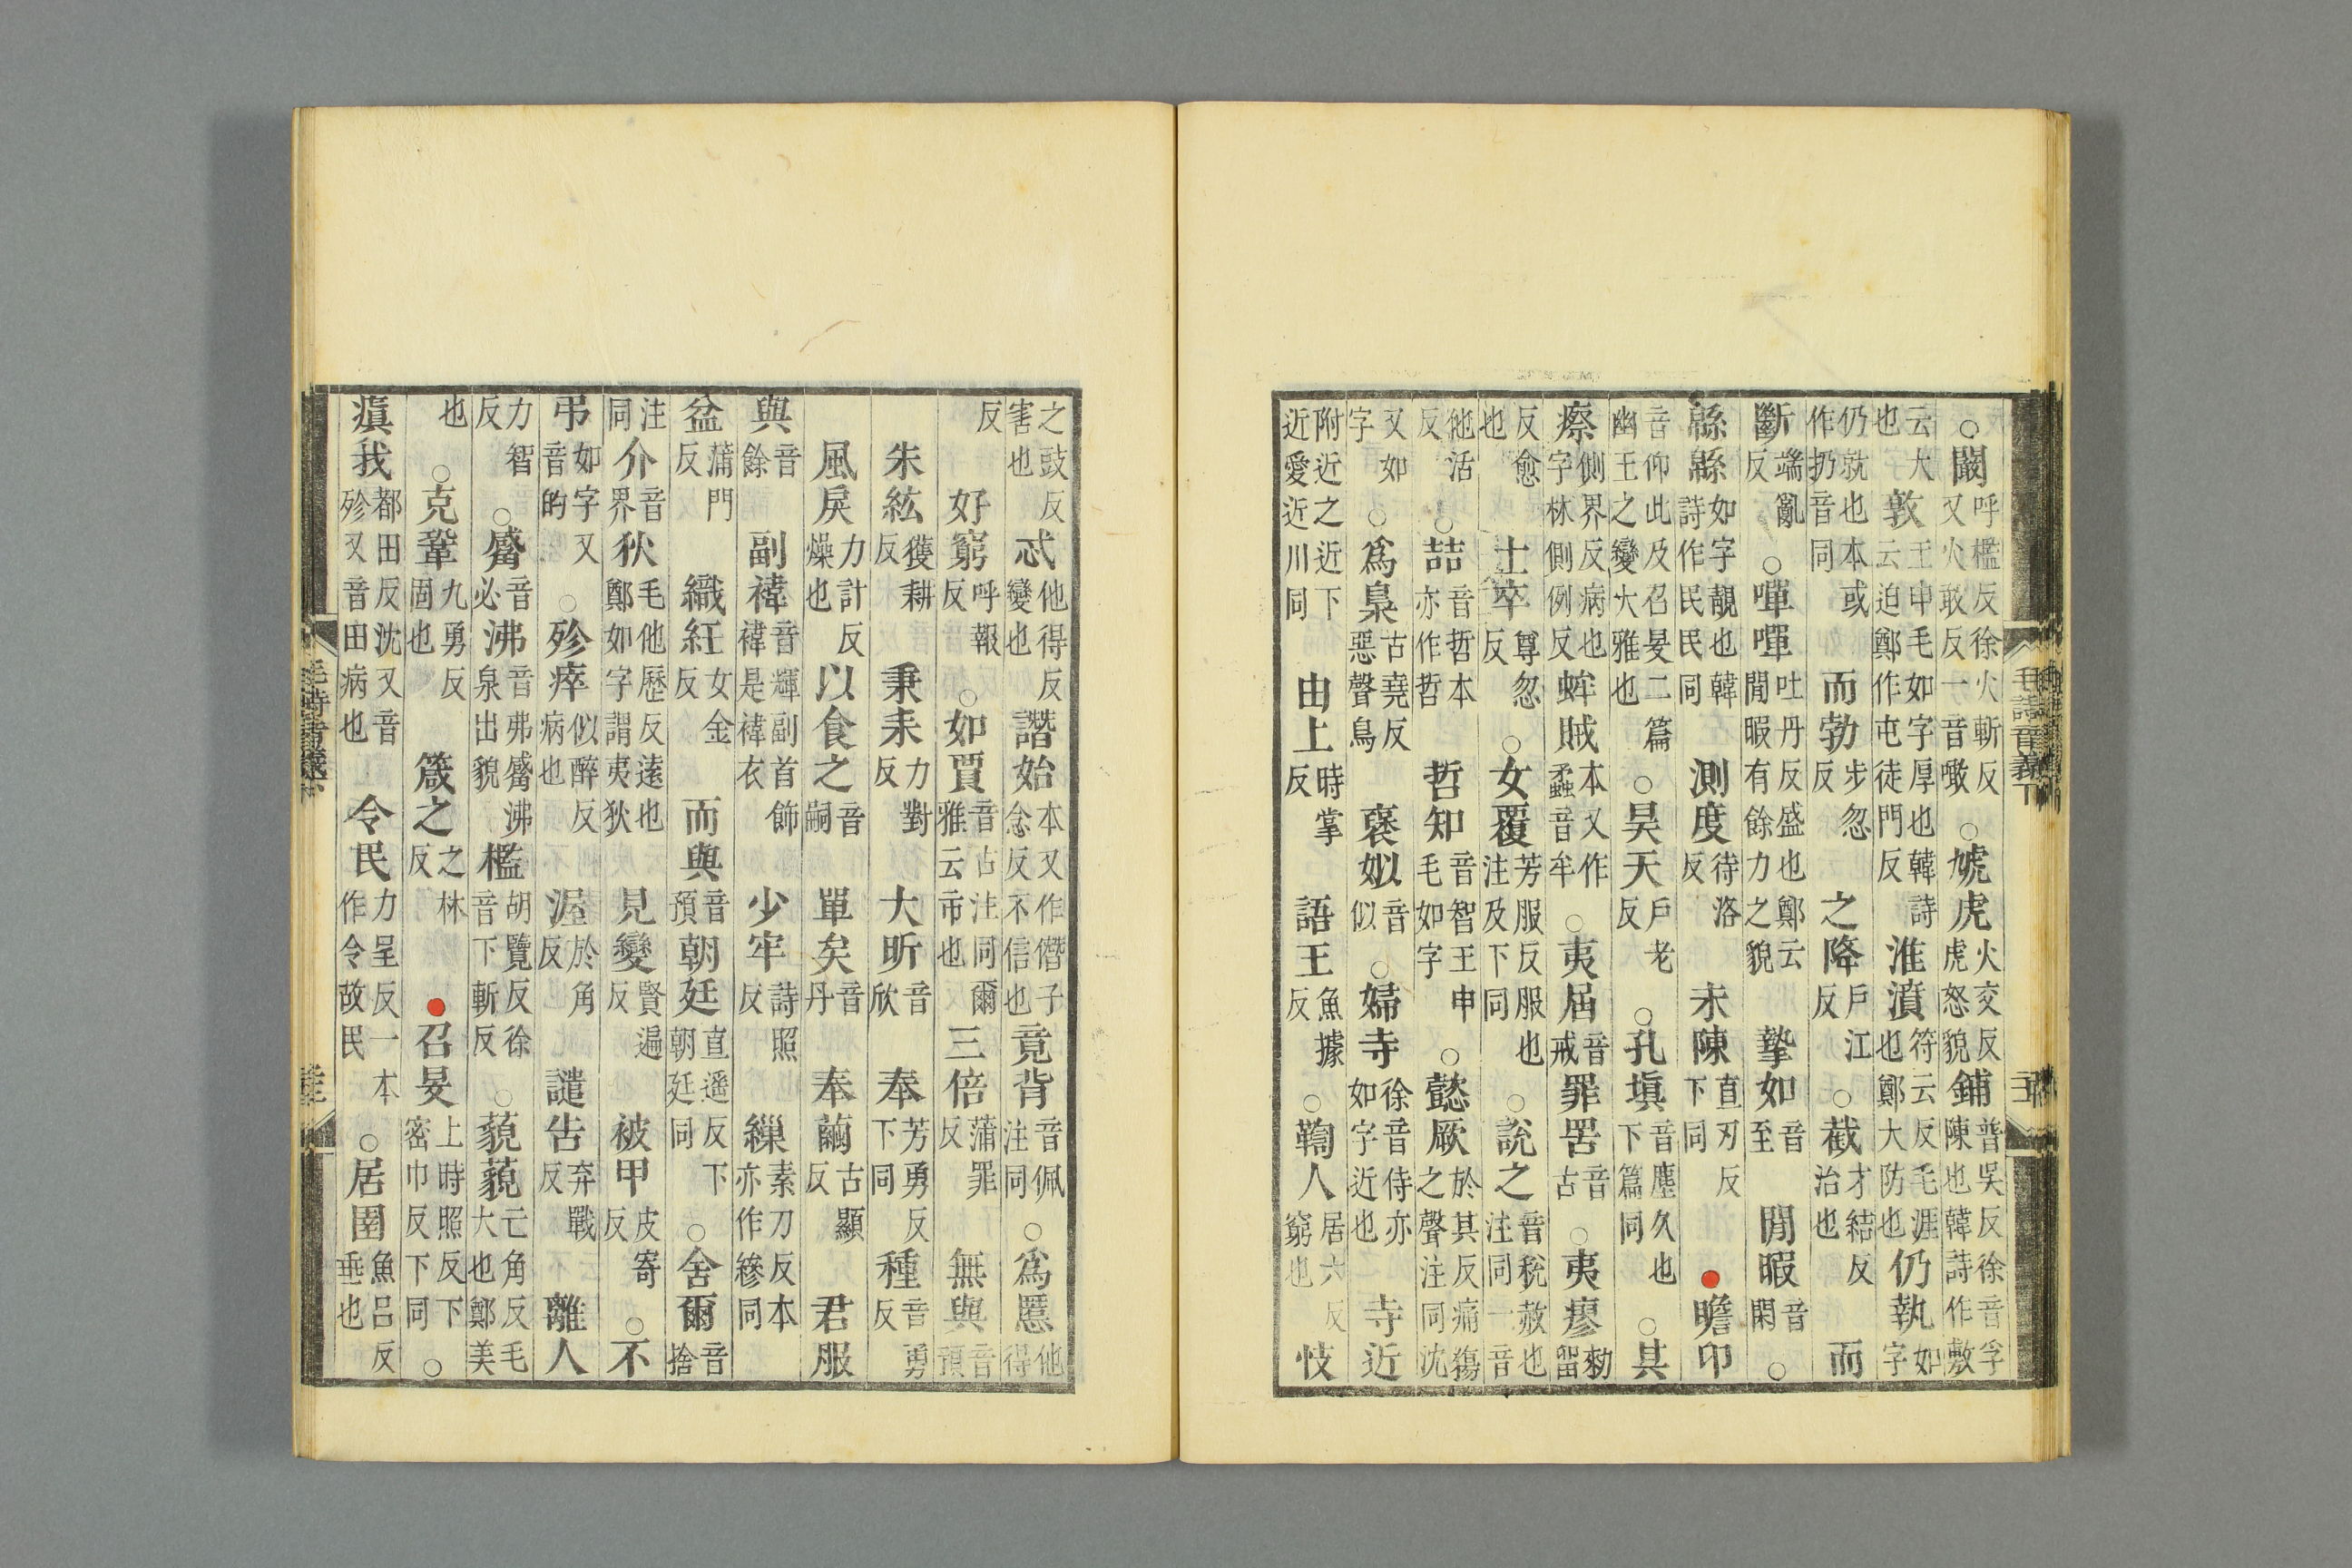 ○闞呼檻反徐火斬反又火敢反一音噉○虓虎火交反虎怒貌鋪普吳反徐音孚陳也韓詩作敷
云大也敦王申毛如字厚也韓詩云迫鄭作屯徒門反淮濆符云反毛涯也鄭大防也仍執如字
仍就也本或作扔音同而勃步忽反之降戶江反○截才結反治也而
斷端亂反○嘽嘽吐丹反盛也鄭云閒暇有餘力之貌摯如音至閒暇音閑○
緜緜如字靚也韓詩作民民同測度待洛反未陳直刃反下同●瞻卬
音仰此及召旻二篇幽王之變大雅也○昊天戶老反○孔塡音塵久也下篇同○其
瘵側界反病也字林側例反蛑賊本又作蟊音牟○夷屆音戒罪罟音古○夷瘳勑留
反愈也士卒尊忽反○女覆芳服反服也注及下同○說之音稅赦也注同一音
他活反○喆音哲本亦作哲哲知音智王申毛如字○懿厥於其反痛傷之聲注同沈
又如字○爲梟古堯反惡聲鳥褒姒音似○婦寺徐音侍亦如字近也寺近
附近之近下近愛近近川同由上時掌反語王魚據反○鞫人居六反窮也忮
之豉反害也忒他得反變也譖始本又作僭子念反不信也竟背音佩注同○爲慝他得
反好窮呼報反○如賈音古注同爾雅云市也三倍蒲罪反無與音預
朱紘獲耕反秉耒力對反大昕音欣奉芳勇反下同種音勇反
風戾力計反燥也以食之音嗣單矣音丹奉繭古顯反君服
與音餘副褘音輝副首飾褘是褘衣少牢詩照反繅素刀反本亦作繰同
盆蒲門反織紝女金反而與音預朝廷直遥反下朝廷同○舍爾音捨
注同介音界狄毛他歷反遠也鄭如字謂夷狄見變賢遍反被甲皮寄反○不
弔如字又音的○殄瘁似醉反病也渥於角反譴告弃戰反離人
力智反○觱音必沸音弗觱沸泉出貌檻胡覽反徐音下斬反○藐藐亡角反毛大也鄭美
也○克鞏九勇反固也箴之之林反●召旻上時照反下密巾反下同○
瘨我都田反沈又音殄又音田病也令民力呈反一本作令故民○居圉魚呂反垂也
毛詩音義下